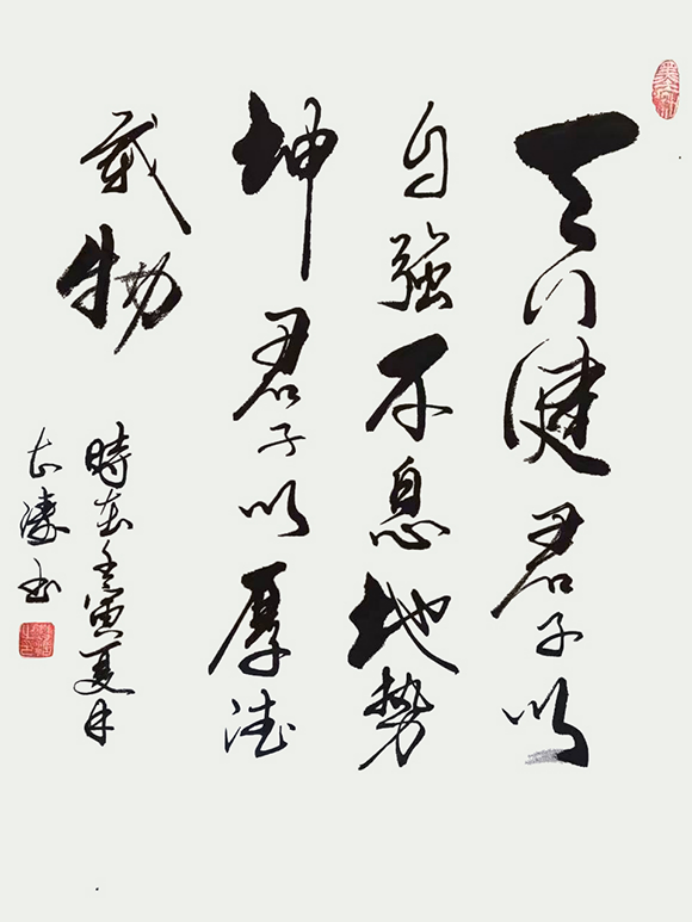 天行健君子以
自強不息地勢
坤君子以厚德
載物
時在壬寅夏月
志濤书